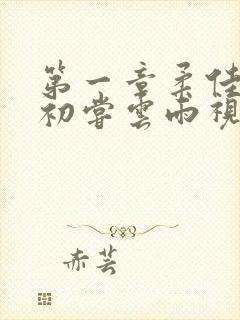 第一章柔佳
初尝云雨视
赤芸